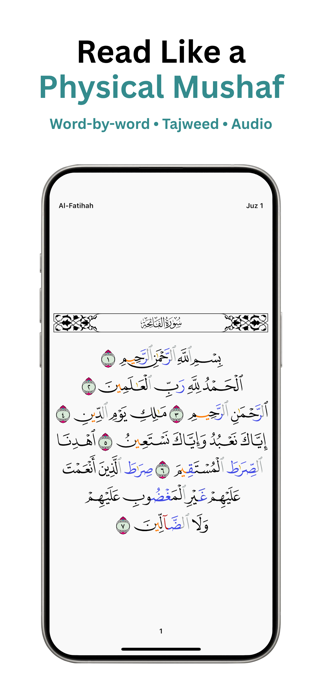 Read Like a
Physical Mushaf
Word-by-word • Tajweed • Audio
Al-Fatihah
Juz 1
سُورَةُ الْفَاتِحَةِ
بِسْمِ ٱللَّهِ ٱلرَّحْمَٰنِ ٱلرَّحِيمِ ١
ٱلْحَمْدُ لِلَّهِ رَبِّ ٱلْعَٰلَمِينَ ٢
ٱلرَّحْمَٰنِ ٱلرَّحِيمِ ٣ مَٰلِكِ يَوْمِ ٱلدِّينِ ٤
إِيَّاكَ نَعْبُدُ وَإِيَّاكَ نَسْتَعِينُ ٥ ٱهْدِنَا
ٱلصِّرَٰطَ ٱلْمُسْتَقِيمَ ٦ صِرَٰطَ ٱلَّذِينَ أَنْعَمْتَ
عَلَيْهِمْ غَيْرِ ٱلْمَغْضُوبِ عَلَيْهِمْ
وَلَا ٱلضَّآلِّينَ ٧
1